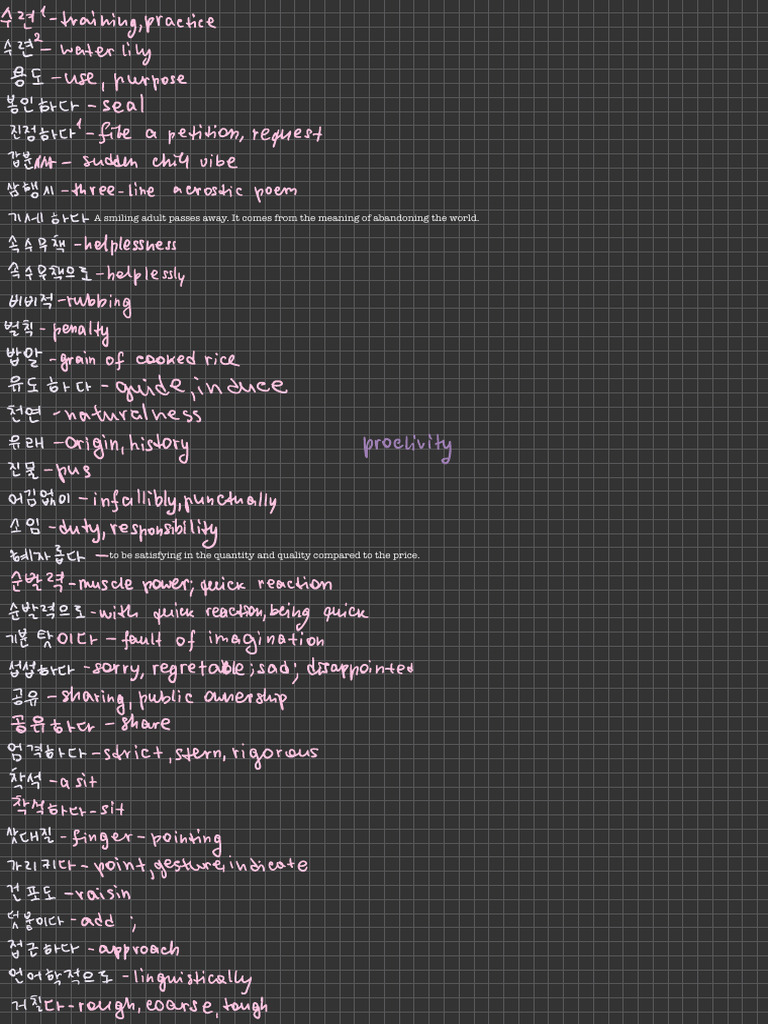 수련¹ - training, practice
수련² - water lily
용도 - use, purpose
봉인하다 - seal
진정하다¹ - file a petition, request
갑분싸 - sudden chill vibe
삼행시 - three-line acrostic poem
기세하다 A smiling adult passes away. It comes from the meaning of abandoning the world.
속수무책 - helplessness
속수무책으로 - helplessly
비비적 - rubbing
벌칙 - penalty
밥알 - grain of cooked rice
유도하다 - guide, induce
천연 - naturalness
유래 - origin, history
proclivity
진물 - pus
어김없이 - infallibly, punctually
소임 - duty, responsibility
혜자롭다 - to be satisfying in the quantity and quality compared to the price.
순발력 - muscle power; quick reaction
순발력으로 - with quick reaction, being quick
기분 탓이다 - fault of imagination
섭섭하다 - sorry, regretable; sad; disappointed
공유 - sharing, public ownership
공유하다 - share
엄격하다 - strict, stern, rigorous
착석 - a sit
착석하다 - sit
삿대질 - finger-pointing
가리키다 - point, gesture, indicate
건포도 - raisin
덧붙이다 - add ;
접근하다 - approach
언어학적으로 - linguistically
거칠다 - rough, coarse, tough